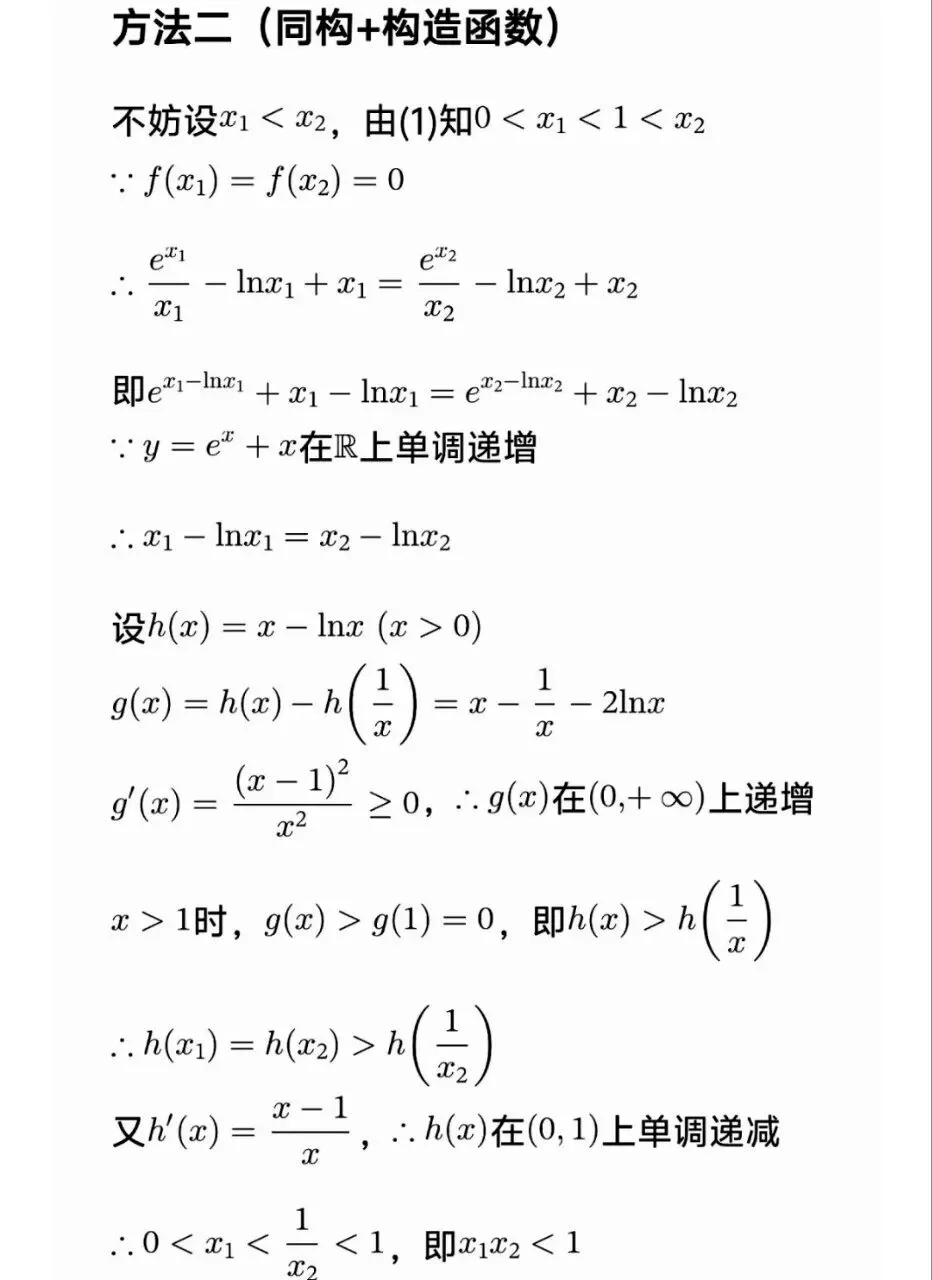 方法二（同构+构造函数）
不妨设x₁ < x₂，由(1)知0 < x₁ < 1 < x₂
∵ f(x₁) = f(x₂) = 0
∴ e^{x₁}/x₁ − lnx₁ + x₁ = e^{x₂}/x₂ − lnx₂ + x₂
即e^{x₁−lnx₁} + x₁ − lnx₁ = e^{x₂−lnx₂} + x₂ − lnx₂
∵ y = e^x + x在ℝ上单调递增
∴ x₁ − lnx₁ = x₂ − lnx₂
设h(x) = x − lnx (x > 0)
g(x) = h(x) − h(1/x) = x − 1/x − 2lnx
g′(x) = (x − 1)²/x² ≥ 0，∴ g(x)在(0,+ ∞)上递增
x > 1时，g(x) > g(1) = 0，即h(x) > h(1/x)
∴ h(x₁) = h(x₂) > h(1/x₂)
又h′(x) = (x − 1)/x，∴ h(x)在(0, 1)上单调递减
∴ 0 < x₁ < 1/x₂ < 1，即x₁x₂ < 1